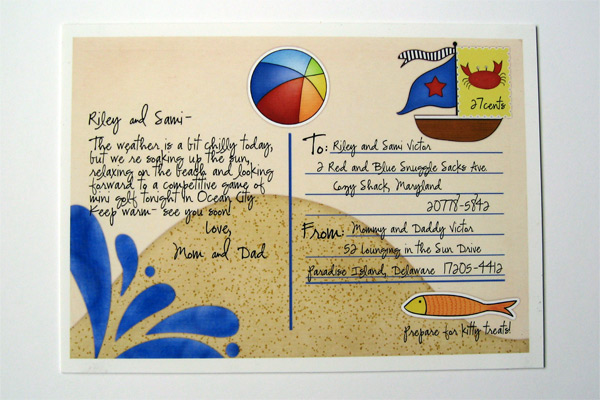 Riley and Sami-
The weather is a bit chilly today,
but we're soaking up the sun,
relaxing on the beach and looking
forward to a competitive game of
mini golf tonight in Ocean City.
Keep warm- see you soon!
Love,
Mom and Dad
27cents
To: Riley and Sami Victor
2 Red and Blue Snuggle Sacks Ave.
Cozy Shack, Maryland
20778-5842
From: Mommy and Daddy Victor
52 Lounging in the Sun Drive
Paradise Island, Delaware 17205-4412
prepare for kitty treats!